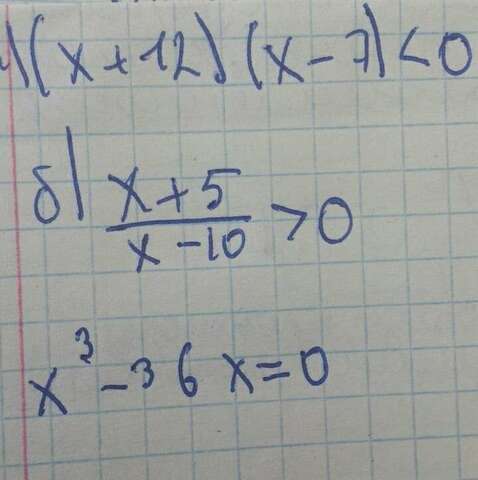 (x+12)(x-7)<0
б) x+5
x-10 >0
x³-36x=0